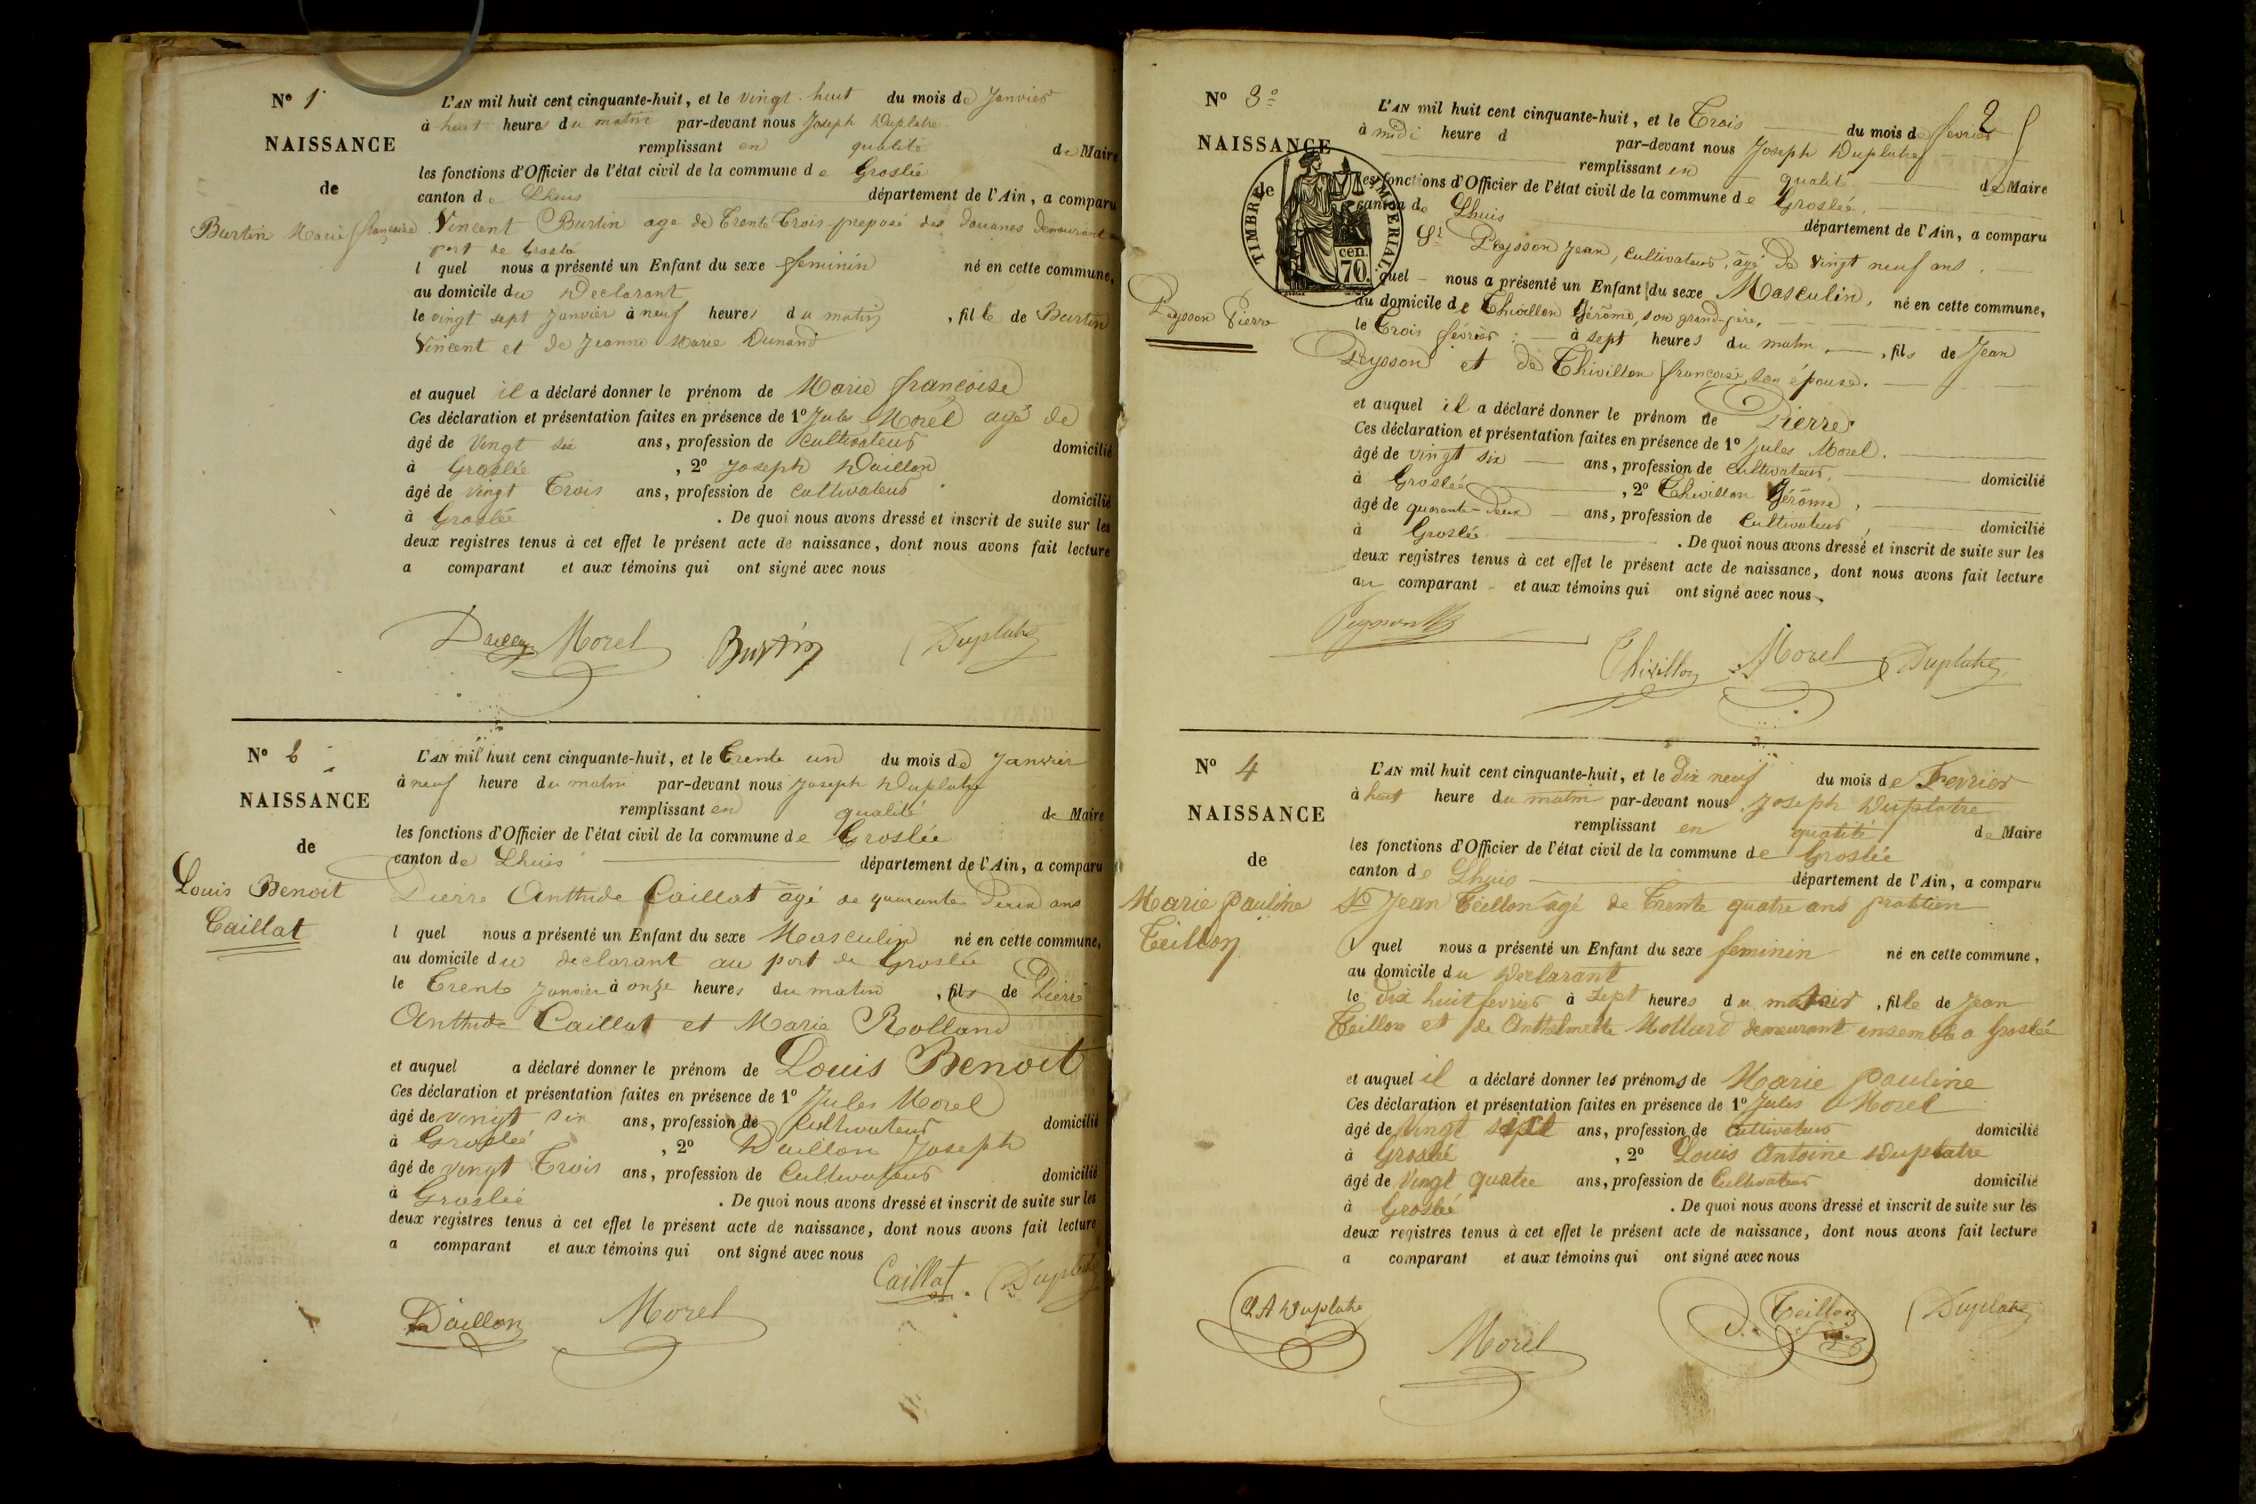 N° 1
NAISSANCE
de
Burtin Marie françoise
L'AN mil huit cent cinquante-huit, et le vingt huit du mois de Janvier
à huit heures du matin par-devant nous Joseph Duplatre
remplissant en qualité de Maire
les fonctions d'Officier de l'état civil de la commune de Groslée
canton de Lhuis département de l'Ain, a comparu
Vincent Burtin age de Trente Trois preposé des douanes demeurant au
port de Groslée
l quel nous a présenté un Enfant du sexe feminin né en cette commune,
au domicile du Declarant
le vingt sept Janvier à neuf heures du matin, fille de Burtin
Vincent et de Jeanne Marie Dunand
et auquel il a déclaré donner le prénom de Marie françoise
Ces déclaration et présentation faites en présence de 1° Jules Morel agé de
âgé de vingt six ans, profession de cultivateur domicilié
à Groslée, 2° Joseph Daillon
âgé de vingt Trois ans, profession de cultivateur domicilié
à Groslée. De quoi nous avons dressé et inscrit de suite sur les
deux registres tenus à cet effet le présent acte de naissance, dont nous avons fait lecture
a comparant et aux témoins qui ont signé avec nous
Morel Burtin Duplatre
N° 2
NAISSANCE
de
Louis Benoit
Caillat
L'AN mil huit cent cinquante-huit, et le Trente un du mois de Janvier
à neuf heure du matin par-devant nous Joseph Duplatre
remplissant en qualité de Maire
les fonctions d'Officier de l'état civil de la commune de Groslée
canton de Lhuis département de l'Ain, a comparu
Pierre Anthide Caillat âgé de quarante Deux ans
l quel nous a présenté un Enfant du sexe Masculin né en cette commune,
au domicile du declarant au port de Groslée
le Trente Janvier à onze heures du matin, fils de Pierre
Anthide Caillat et Marie Rolland
et auquel a déclaré donner le prénom de Louis Benoit
Ces déclaration et présentation faites en présence de 1° Jules Morel
âgé de vingt six ans, profession de Cultivateur domicilié
à Groslée, 2° Daillon Joseph
âgé de vingt Trois ans, profession de Cultivateur domicilié
à Groslée. De quoi nous avons dressé et inscrit de suite sur les
deux registres tenus à cet effet le présent acte de naissance, dont nous avons fait lecture
a comparant et aux témoins qui ont signé avec nous
Caillat. Duplatre
Daillon Morel
2
N° 3°
NAISSANCE
de
TIMBRE IMPERIAL.
cen. 70.
Peysson Pierre
L'AN mil huit cent cinquante-huit, et le Trois du mois de février
à midi heure d par-devant nous Joseph Duplatre
remplissant en qualité de Maire
les fonctions d'Officier de l'état civil de la commune de Groslée,
canton de Lhuis département de l'Ain, a comparu
Sr Peysson Jean, cultivateur, âgé de vingt neuf ans.
quel nous a présenté un Enfant du sexe Masculin, né en cette commune,
au domicile de Chivillon Jérôme, son grand-père,
le Trois février à sept heures du matin, fils de Jean
Peysson et de Chivillon françoise, son épouse.
et auquel il a déclaré donner le prénom de Pierre.
Ces déclaration et présentation faites en présence de 1° Jules Morel.
âgé de vingt six ans, profession de cultivateur, domicilié
à Groslée, 2° Chivillon Jérôme,
âgé de quarante-deux ans, profession de Cultivateur, domicilié
à Groslée. De quoi nous avons dressé et inscrit de suite sur les
deux registres tenus à cet effet le présent acte de naissance, dont nous avons fait lecture
au comparant et aux témoins qui ont signé avec nous.
Peysson
Chivillon Morel Duplatre
N° 4
NAISSANCE
de
Marie pauline
Teillon
L'AN mil huit cent cinquante-huit, et le Dix neuf du mois de Fevrier
à huit heure du matin par-devant nous Joseph Duplatre
remplissant en qualité de Maire
les fonctions d'Officier de l'état civil de la commune de Groslée
canton de Lhuis département de l'Ain, a comparu
Sr Jean Teillon âgé de Trente quatre ans praticien
l quel nous a présenté un Enfant du sexe feminin né en cette commune,
au domicile du Declarant
le dix huit fevrier à sept heures du matin, fille de Jean
Teillon et de Anthelmette Mollard demeurant ensemble a Groslée
et auquel il a déclaré donner les prénoms de Marie pauline
Ces déclaration et présentation faites en présence de 1° Jules Morel
âgé de vingt sept ans, profession de Cultivateur domicilié
à Groslée, 2° Louis Antoine Duplatre
âgé de Vingt quatre ans, profession de Cultivateur domicilié
à Groslée. De quoi nous avons dressé et inscrit de suite sur les
deux registres tenus à cet effet le présent acte de naissance, dont nous avons fait lecture
a comparant et aux témoins qui ont signé avec nous
L A Duplatre Morel Teillon Duplatre